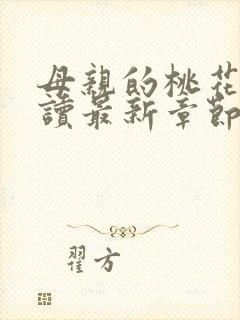 母親的桃花
讀最新章節
翟方